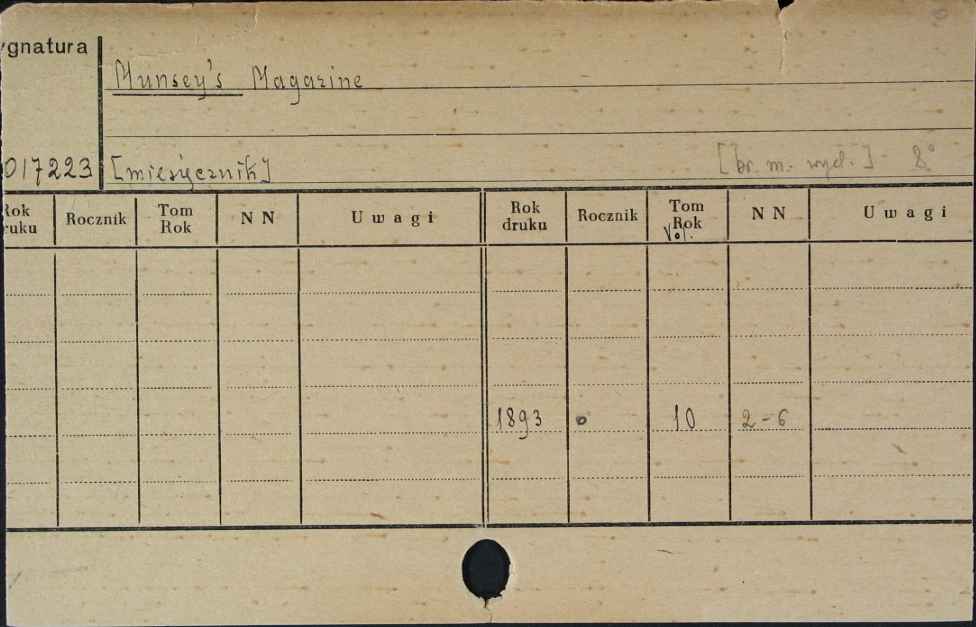 ygnatura
Munsey's Magazine
017223 [miesięcznik] [br. m. wyd.] 8°
Rok druku Rocznik Tom Rok N N Uwagi Rok druku Rocznik Tom Rok Vol. N N Uwagi
1893 10 2-6